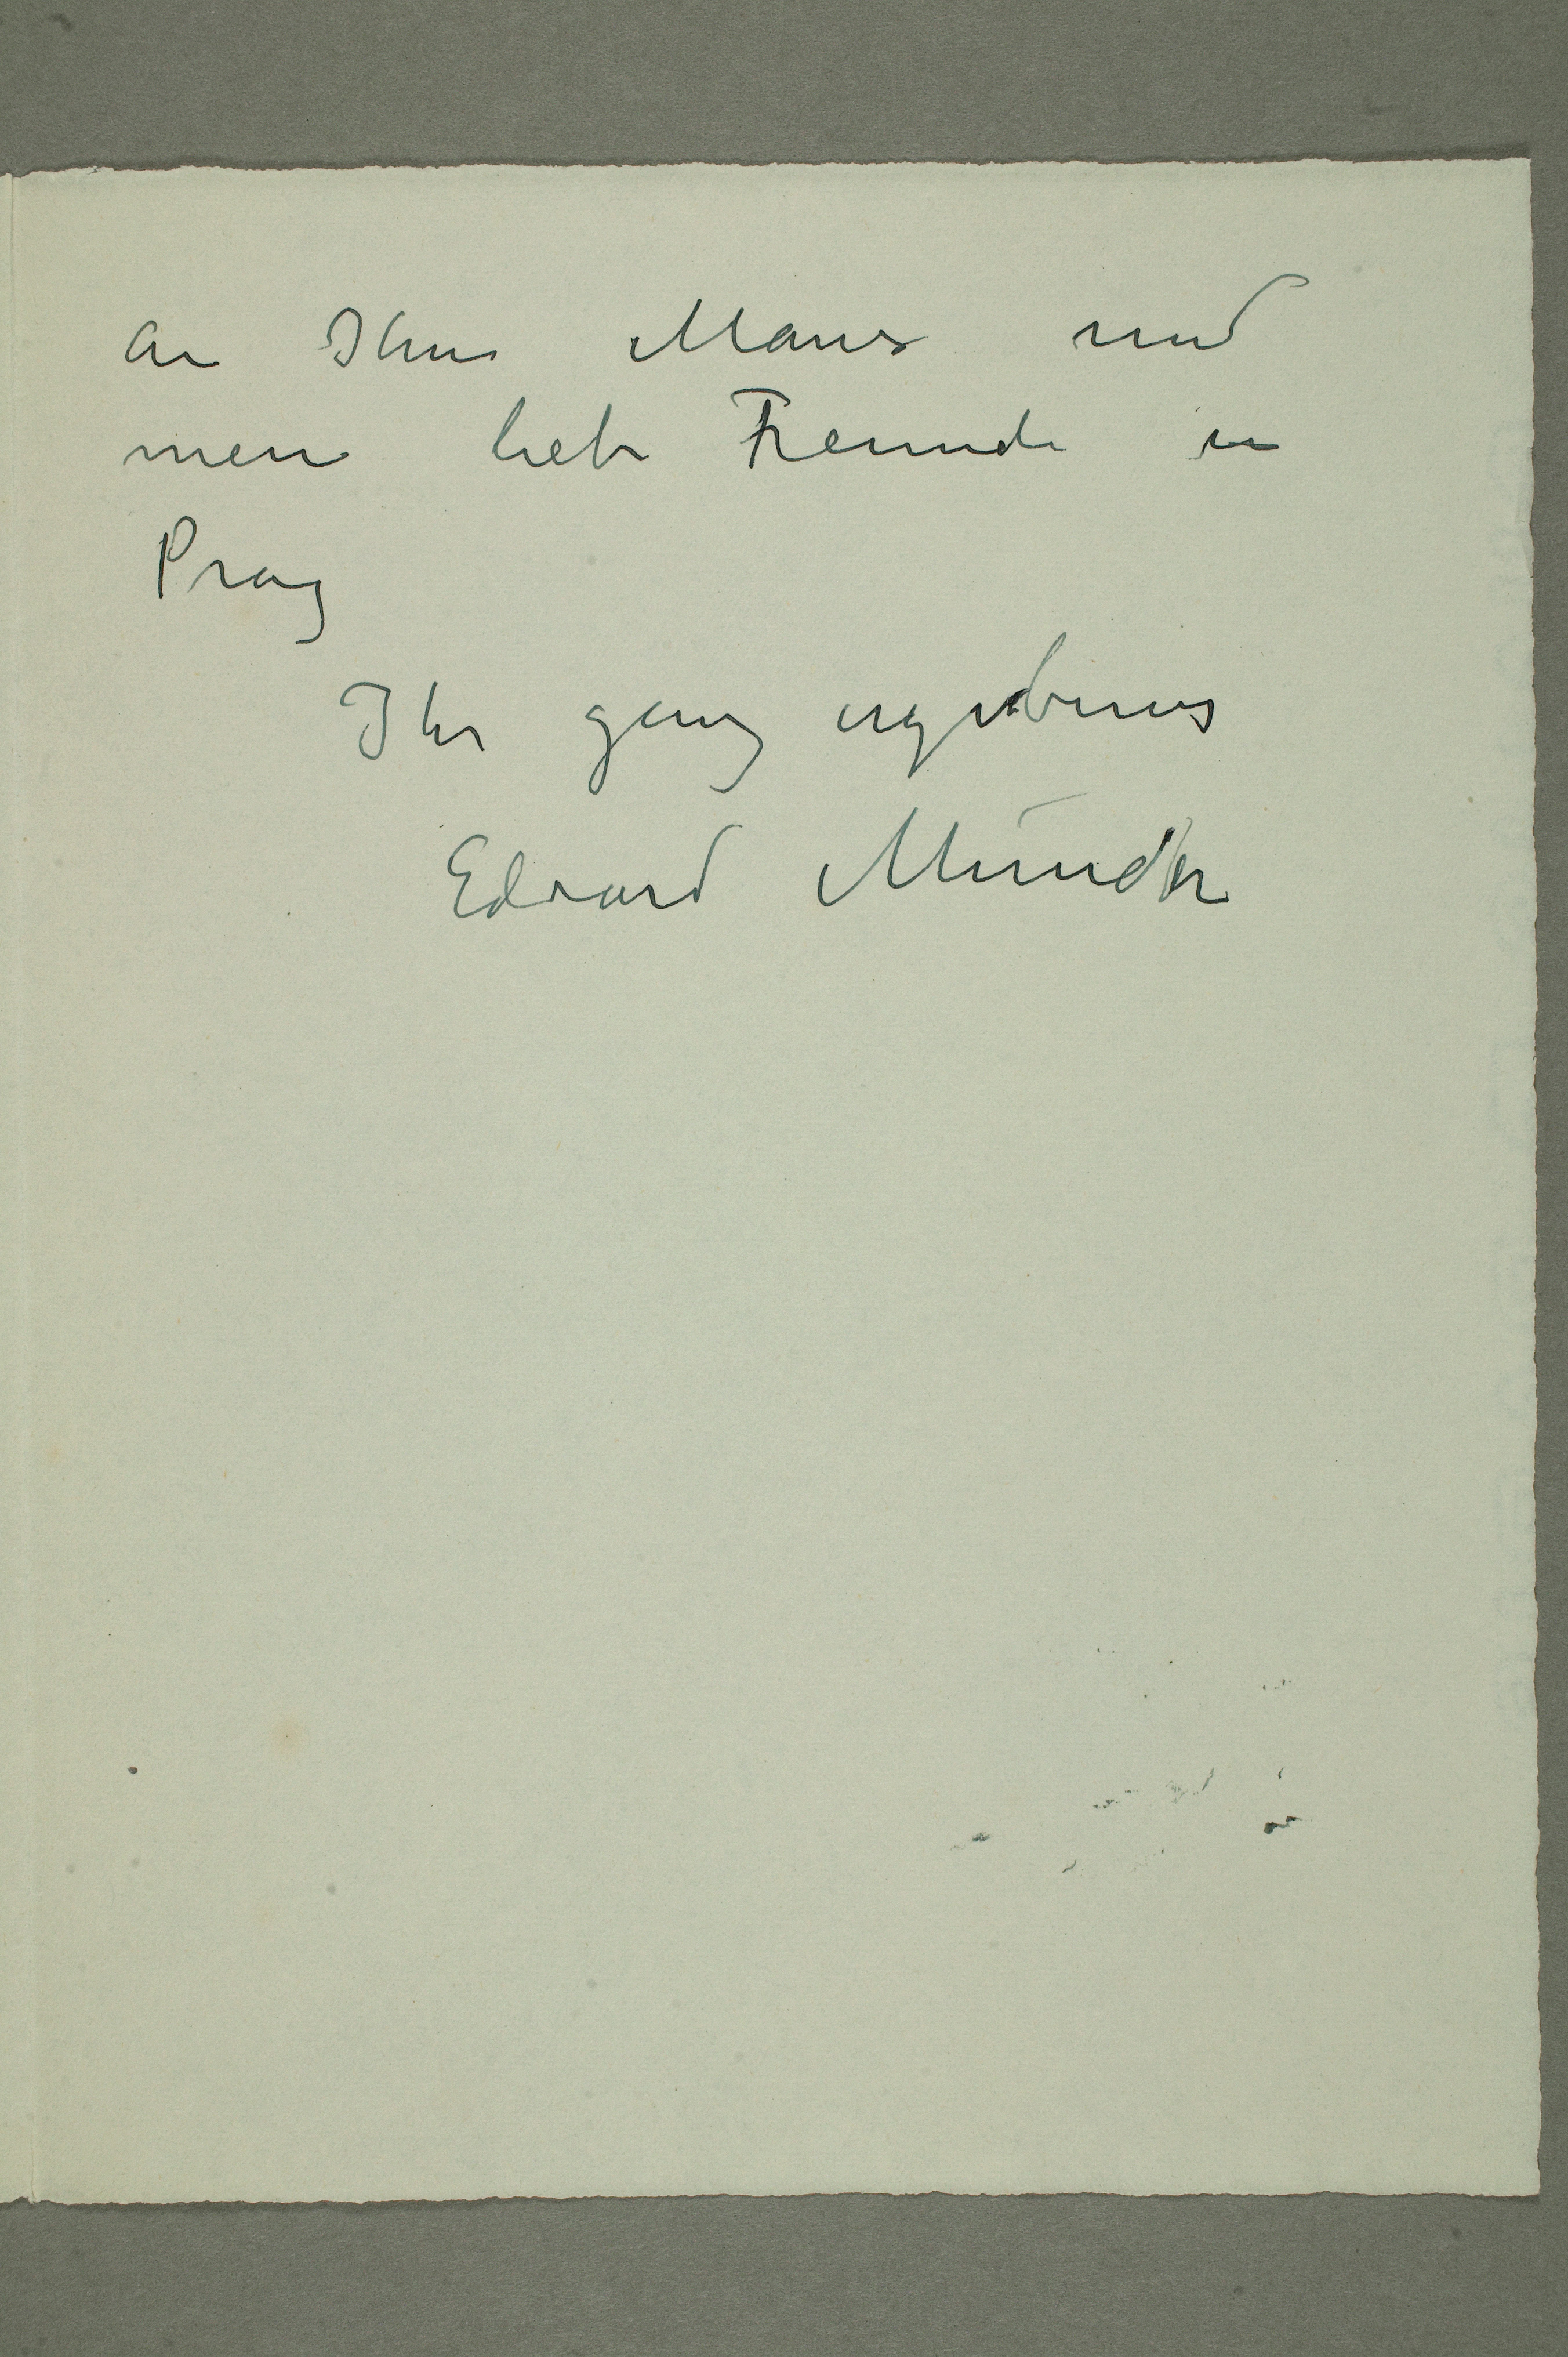 an Ihren Mann und
mein liebe Freunde in
Prag
Ihr ganz ergebenes
Edvard Munch